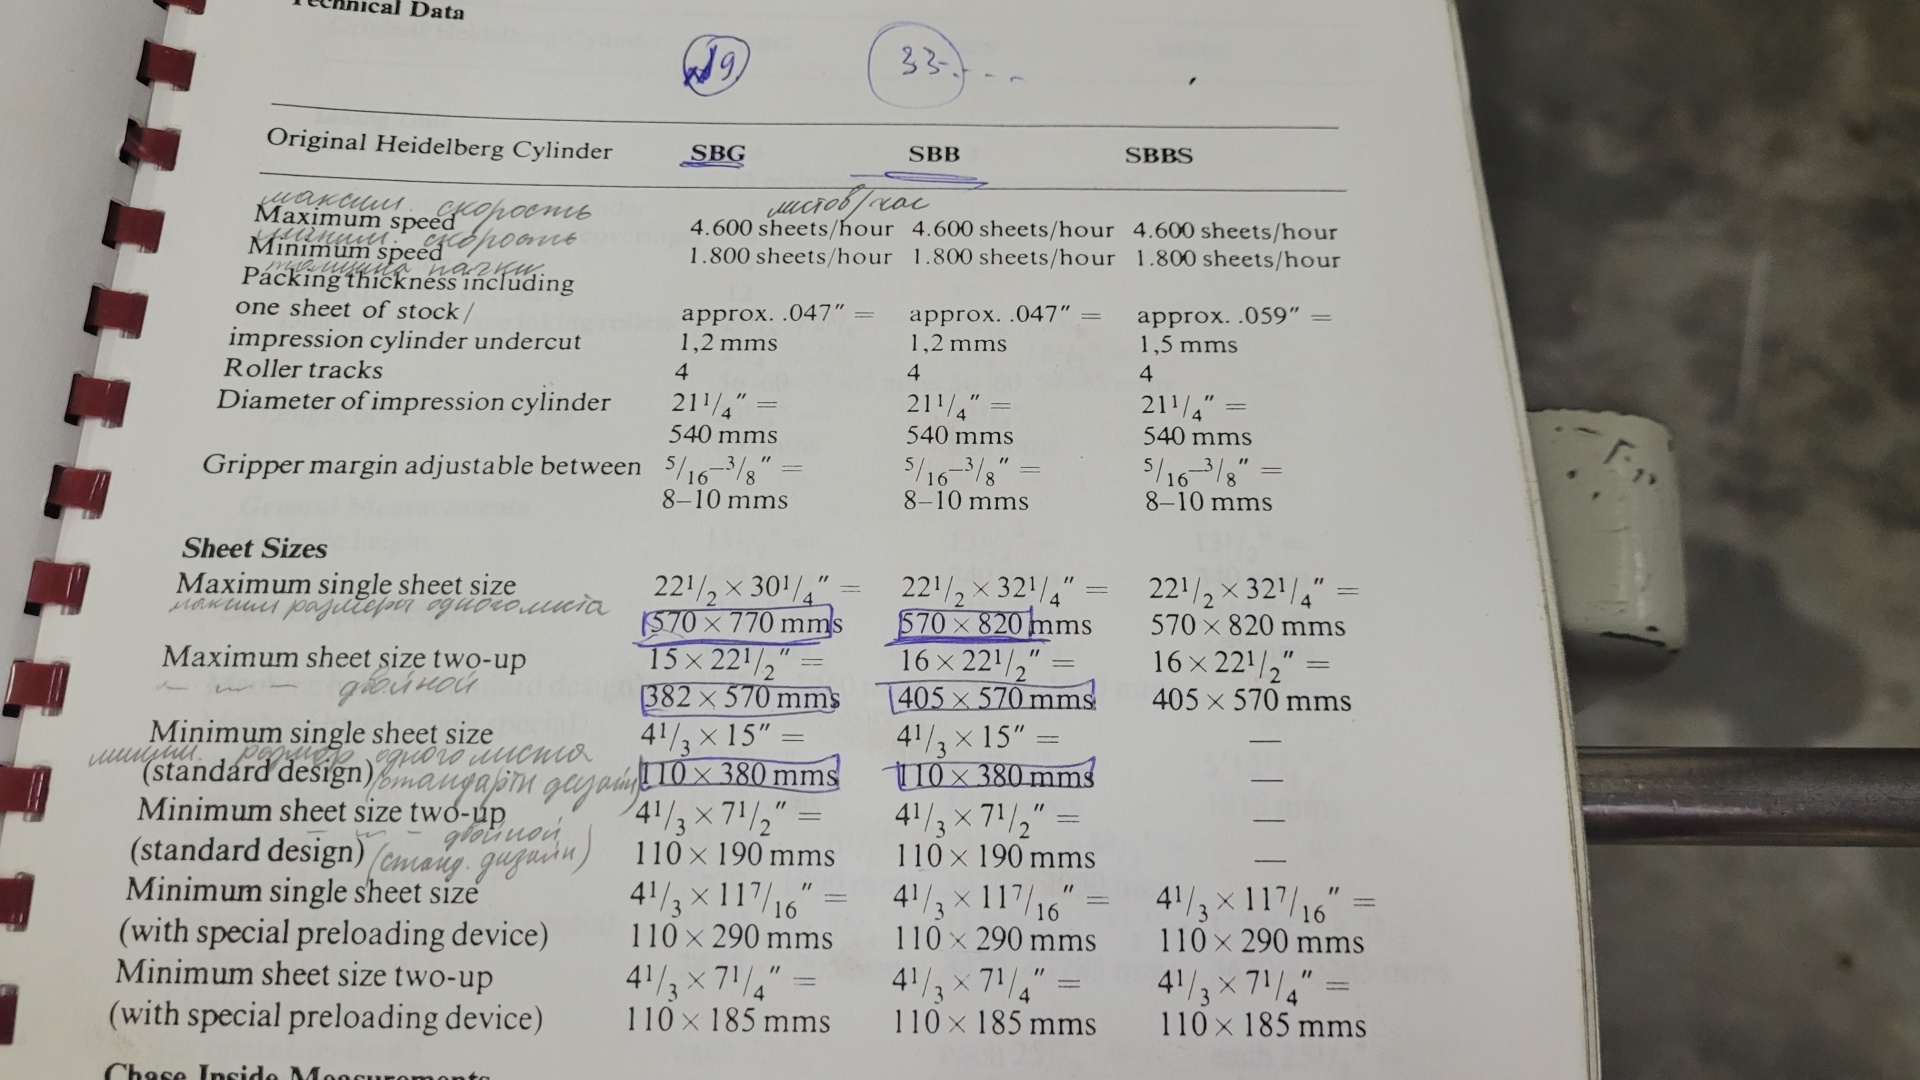 Technical Data
19 33
Original Heidelberg Cylinder SBG SBB SBBS
максим. скорость листов/час
Maximum speed 4.600 sheets/hour 4.600 sheets/hour 4.600 sheets/hour
миним. скорость
Minimum speed 1.800 sheets/hour 1.800 sheets/hour 1.800 sheets/hour
толщина пачки
Packing thickness including
one sheet of stock/ approx. .047″ = approx. .047″ = approx. .059″ =
impression cylinder undercut 1,2 mms 1,2 mms 1,5 mms
Roller tracks 4 4 4
Diameter of impression cylinder 21 1/4″ = 21 1/4″ = 21 1/4″ =
540 mms 540 mms 540 mms
Gripper margin adjustable between 5/16–3/8″ = 5/16–3/8″ = 5/16–3/8″ =
8–10 mms 8–10 mms 8–10 mms
Sheet Sizes
Maximum single sheet size 22 1/2 × 30 1/4″ = 22 1/2 × 32 1/4″ = 22 1/2 × 32 1/4″ =
максим размеры одного листа 570 × 770 mms 570 × 820 mms 570 × 820 mms
Maximum sheet size two-up 15 × 22 1/2″ = 16 × 22 1/2″ = 16 × 22 1/2″ =
двойной 382 × 570 mms 405 × 570 mms 405 × 570 mms
Minimum single sheet size 4 1/3 × 15″ = 4 1/3 × 15″ = —
миним. размер одного листа
(standard design) (стандартн дизайн) 110 × 380 mms 110 × 380 mms —
Minimum sheet size two-up 4 1/3 × 7 1/2″ = 4 1/3 × 7 1/2″ = —
двойной
(standard design) (станд. дизайн) 110 × 190 mms 110 × 190 mms —
Minimum single sheet size 4 1/3 × 11 7/16″ = 4 1/3 × 11 7/16″ = 4 1/3 × 11 7/16″ =
(with special preloading device) 110 × 290 mms 110 × 290 mms 110 × 290 mms
Minimum sheet size two-up 4 1/3 × 7 1/4″ = 4 1/3 × 7 1/4″ = 4 1/3 × 7 1/4″ =
(with special preloading device) 110 × 185 mms 110 × 185 mms 110 × 185 mms
Chase Inside Measurements